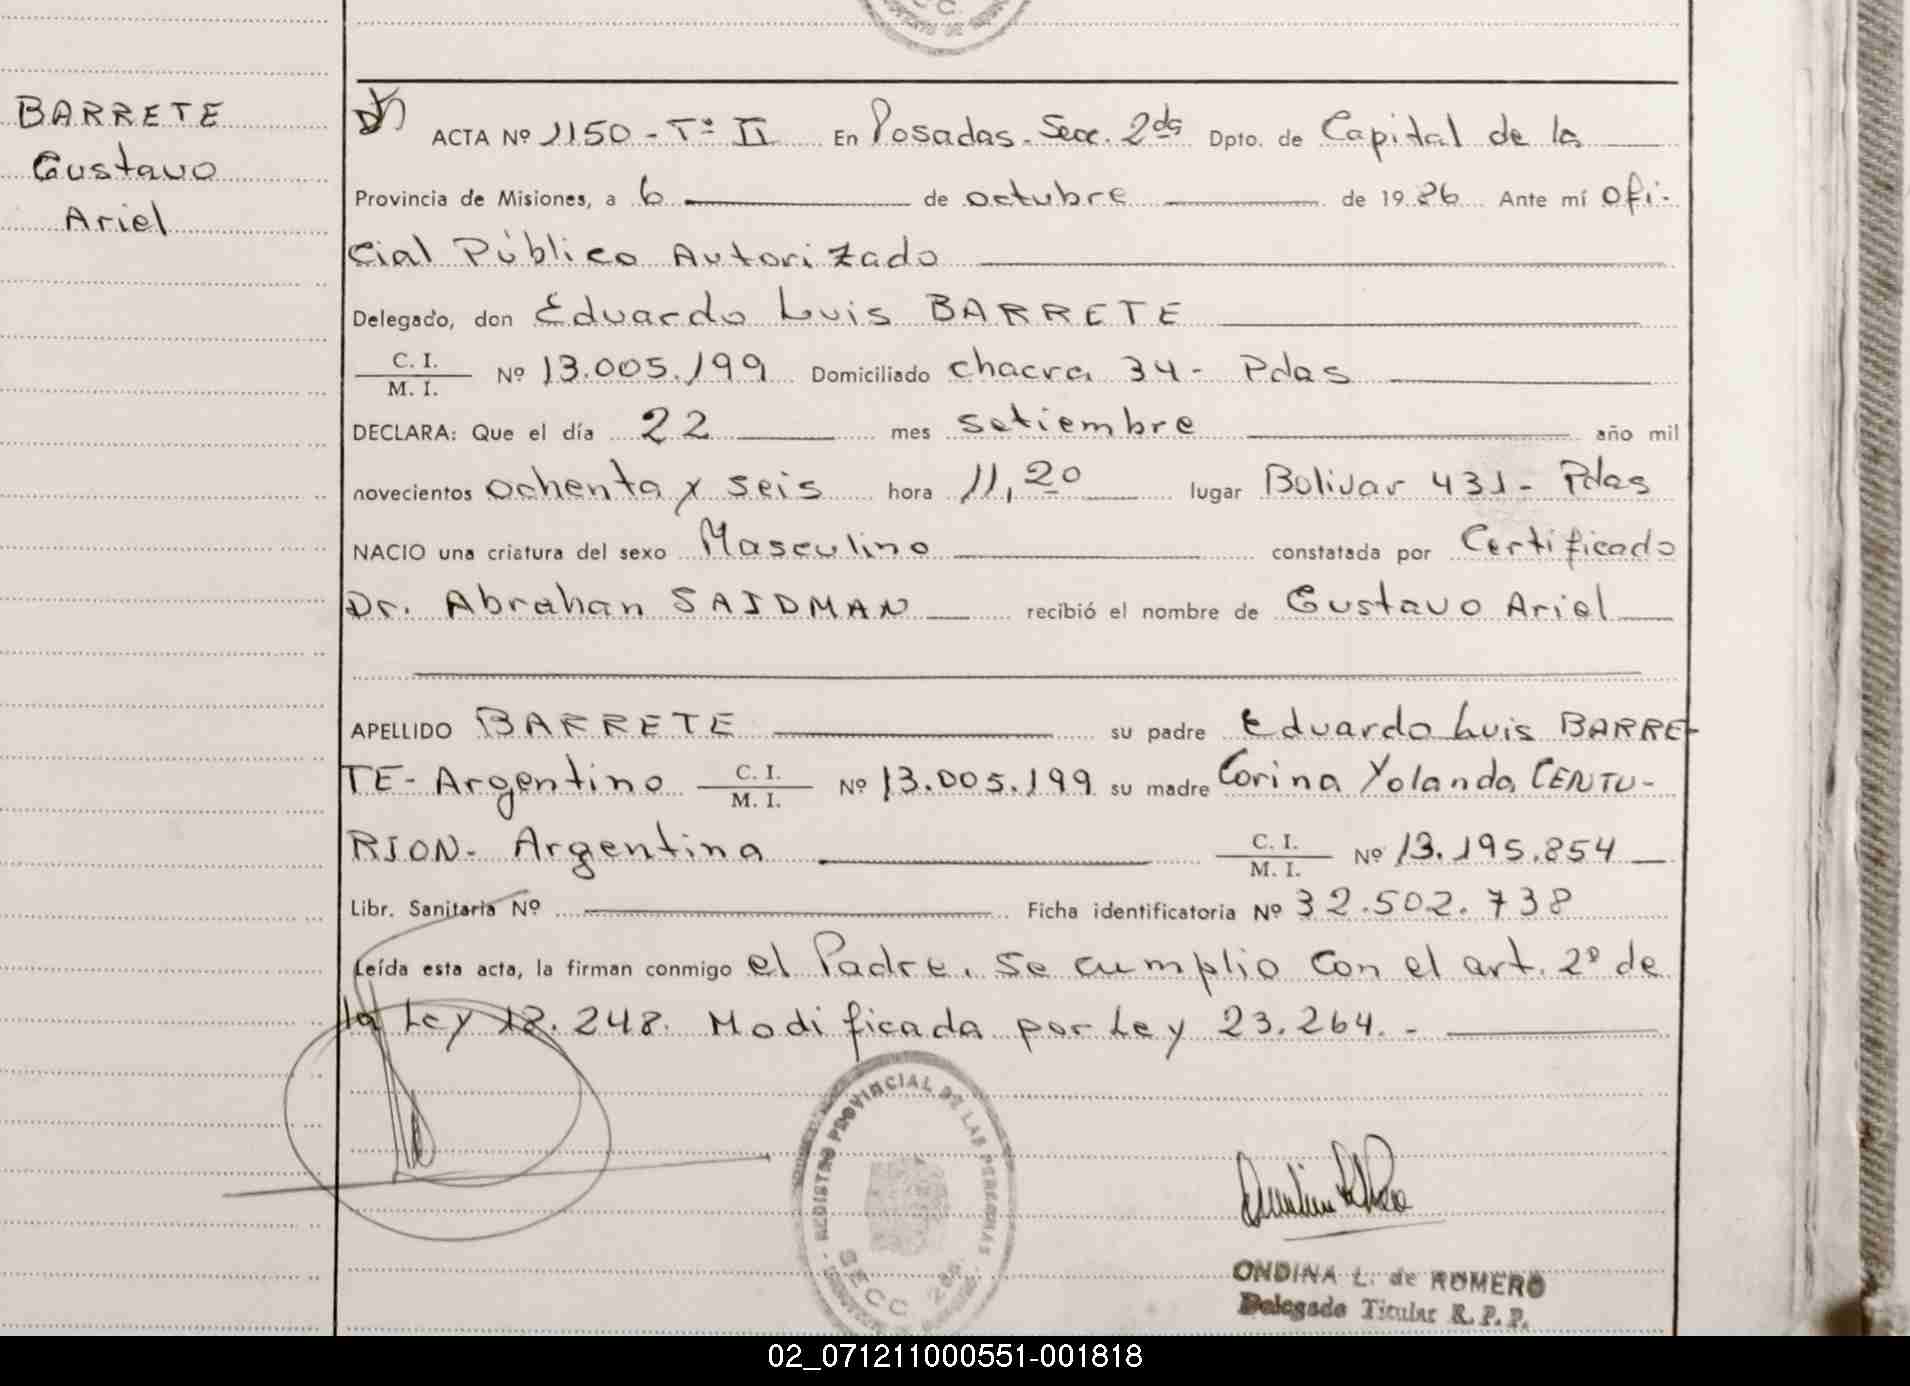 BARRETE
Gustavo
Ariel
ACTA Nº 1150 - Tº II En Posadas. Secc. 2da Dpto. de Capital de la
Provincia de Misiones, a 6 de octubre de 1986 Ante mí Ofi-
cial Público Autorizado
Delegado, don Eduardo Luis BARRETE
C. I.
M. I. Nº 13.005.199 Domiciliado chacra 34 - Pdas
DECLARA: Que el día 22 mes setiembre año mil
novecientos ochenta y seis hora 11,20 lugar Bolivar 431 - Pdas
NACIO una criatura del sexo Masculino constatada por Certificado
Dr. Abrahan SAIDMAN recibió el nombre de Gustavo Ariel
APELLIDO BARRETE su padre Eduardo Luis BARRE-
TE - Argentino C. I. M. I. Nº 13.005.199 su madre Corina Yolanda CENTU-
RION - Argentina C. I. M. I. Nº 13.195.854
Libr. Sanitaria Nº Ficha identificatoria Nº 32.502.738
Leída esta acta, la firman conmigo el Padre. Se cumplio con el art. 2º de
la Ley 18.248. Modificada por Ley 23.264. -
REGISTRO PROVINCIAL DE LAS PERSONAS
SECC 2da.
ONDINA L. de ROMERO
Delegada Titular R. P. P.
02_071211000551-001818